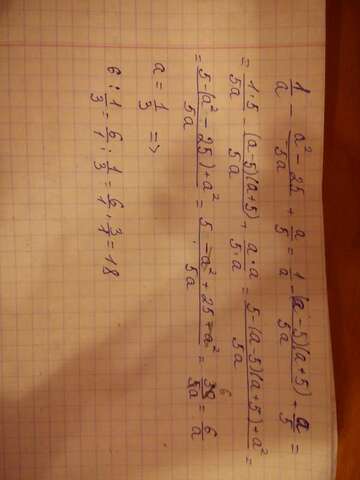 1/a - a² - 25/5a + a/5 = 1/a - (a - 5)(a + 5)/5a + a/5 =
= 1·5/5a - (a-5)(a+5)/5a + a·a/5·a = 5-(a-5)(a+5)+a²/5a =
= 5-(a² - 25)+a²/5a = 5 - a² + 25 + a²/5a = 30 6/5a = 6/a
a = 1/3 =>
6 : 1/3 = 6/1 : 1/3 = 6/1 · 3/1 = 18